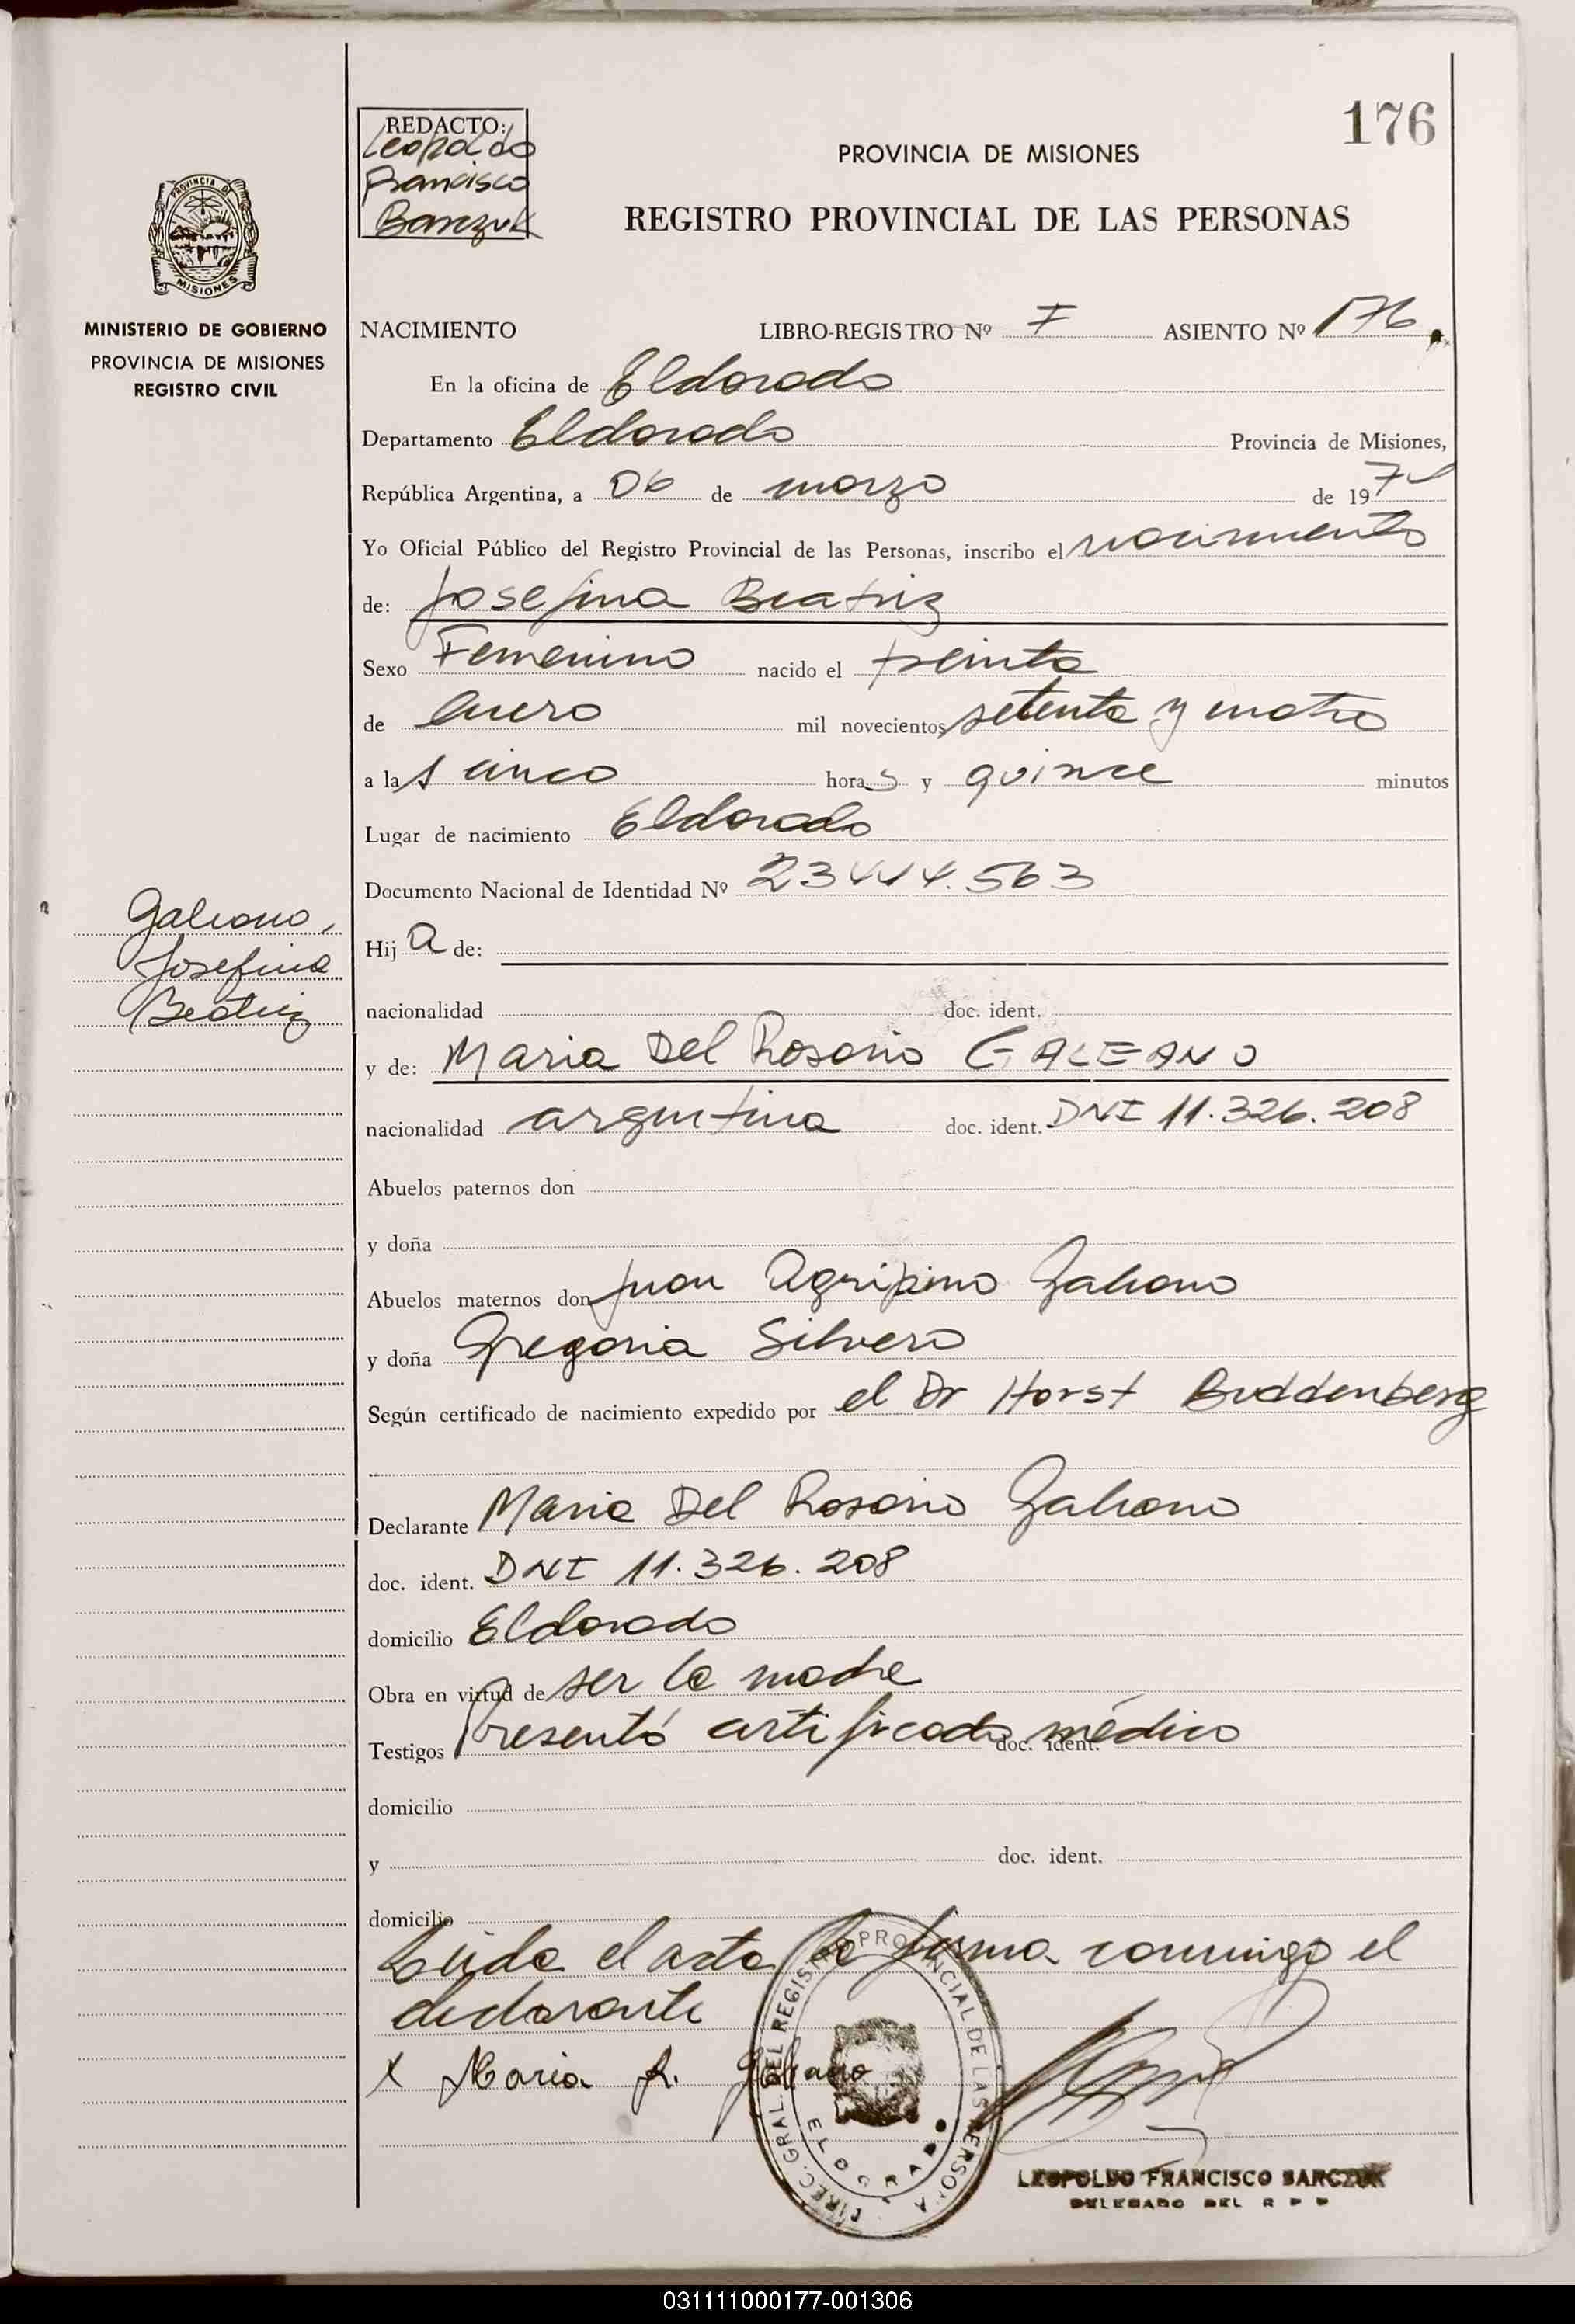 176
REDACTO:
Leopoldo
Francisco
Barczuk
PROVINCIA DE MISIONES
REGISTRO PROVINCIAL DE LAS PERSONAS
PROVINCIA DE
MISIONES
MINISTERIO DE GOBIERNO
PROVINCIA DE MISIONES
REGISTRO CIVIL
NACIMIENTO LIBRO-REGISTRO Nº I ASIENTO Nº 176
En la oficina de Eldorado
Departamento Eldorado Provincia de Misiones,
República Argentina, a 06 de marzo de 197
Yo Oficial Público del Registro Provincial de las Personas, inscribo el nacimiento
de: Josefina Beatriz
Sexo Femenino nacido el treinta
de enero mil novecientos setenta y cuatro
a las cinco horas y quince minutos
Lugar de nacimiento Eldorado
Documento Nacional de Identidad Nº 23444.563
Galeano,
Josefina
Beatriz
Hija de:
nacionalidad doc. ident.
y de: Maria Del Rosario GALEANO
nacionalidad argentina doc. ident. DNI 11.326.208
Abuelos paternos don
y doña
Abuelos maternos don Juan Agripino Galeano
y doña Gregoria Silvero
Según certificado de nacimiento expedido por el Dr Horst Buddenberg
Declarante Maria Del Rosario Galeano
doc. ident. DNI 11.326.208
domicilio Eldorado
Obra en virtud de ser la madre
Testigos Presentó certificado médico doc. ident.
domicilio
y doc. ident.
domicilio
Leida el acta la firma conmigo el
declarante
X Maria R. Galeano
DIREC. GRAL. DEL REGISTRO PROVINCIAL DE LAS PERSONAS
ELDORADO
LEOPOLDO FRANCISCO BARCZUK
DELEGADO DEL R P P
031111000177-001306